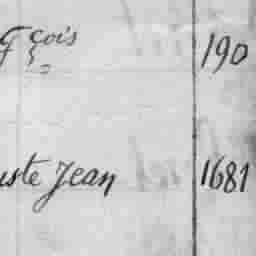 çois 190
uste Jean 1681